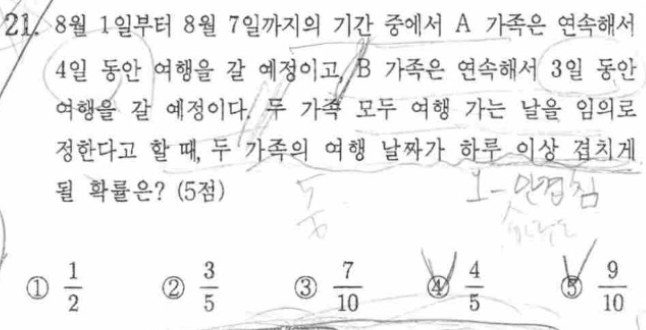 21. 8월 1일부터 8월 7일까지의 기간 중에서 A 가족은 연속해서
4일 동안 여행을 갈 예정이고, B 가족은 연속해서 3일 동안
여행을 갈 예정이다. 두 가족 모두 여행 가는 날을 임의로
정한다고 할 때, 두 가족의 여행 날짜가 하루 이상 겹치게
될 확률은? (5점)
1-안겹침
① 1/2 ② 3/5 ③ 7/10 ④ 4/5 ⑤ 9/10